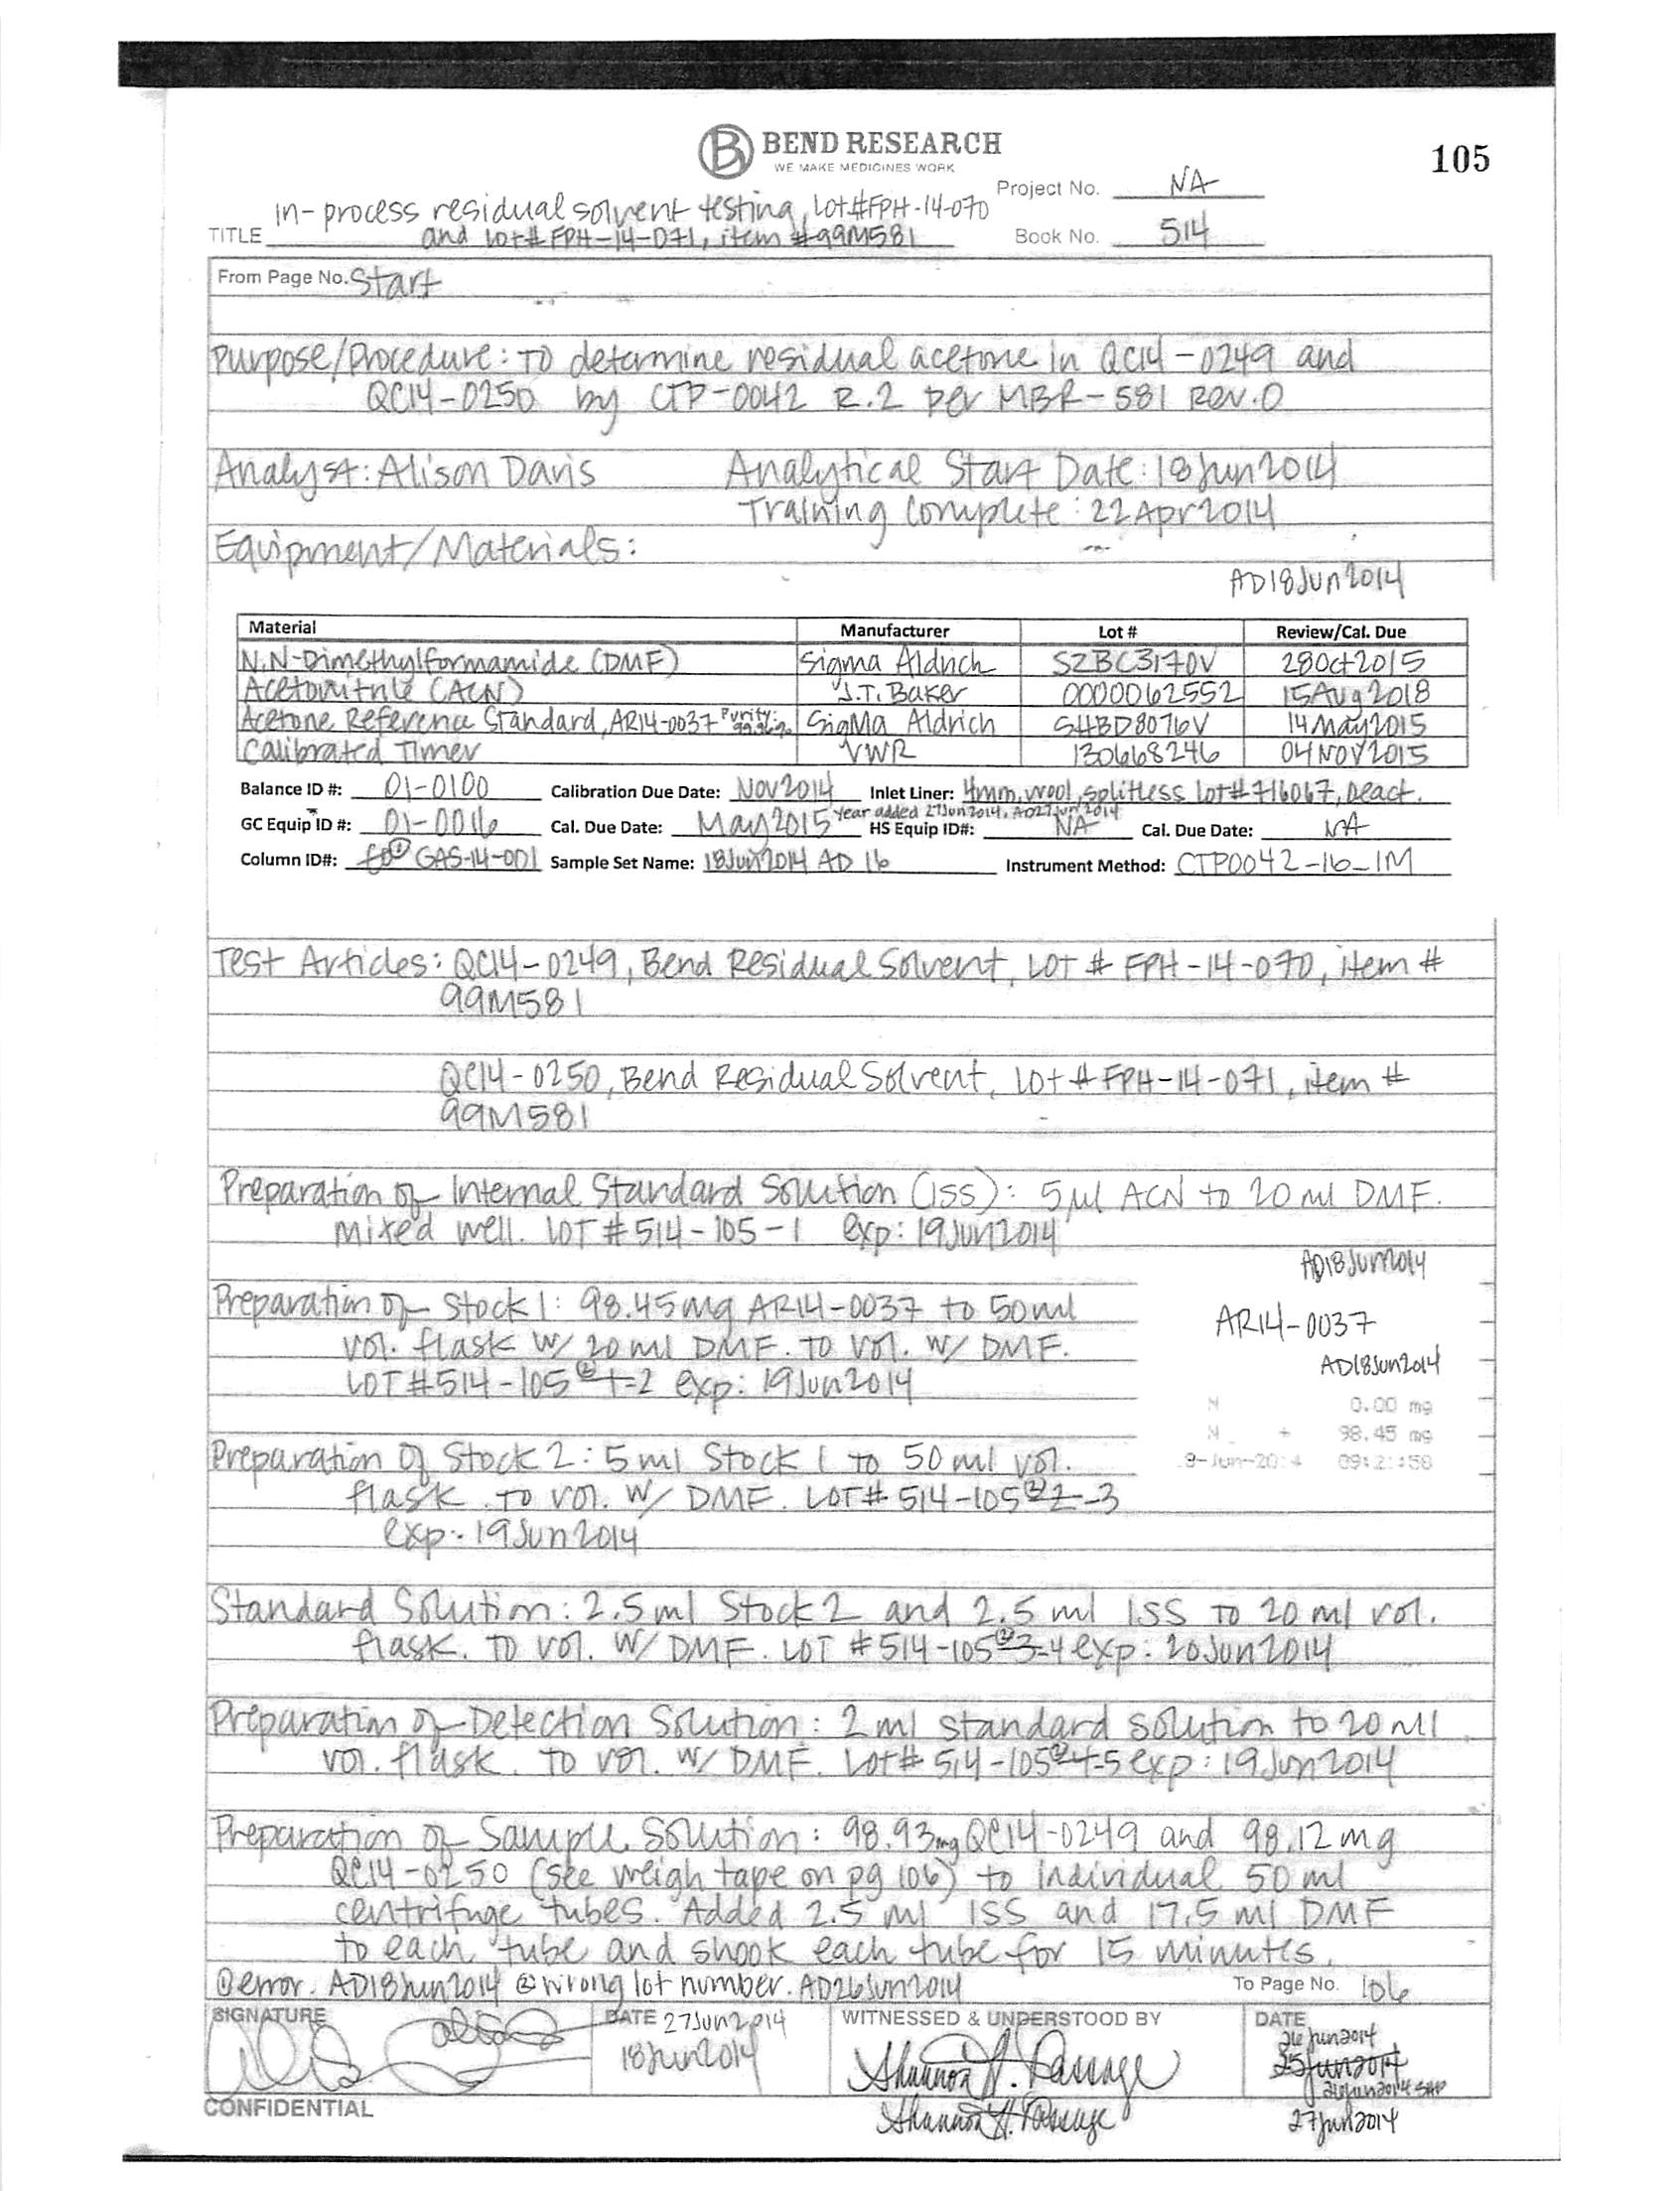 BEND RESEARCH
WE MAKE MEDICINES WORK
105
Project No. NA
TITLE In-process residual solvent testing, Lot#FPH-14-070
and Lot# FPH-14-071, item #99M581
Book No. 514
From Page No. Start
Purpose/Procedure: To determine residual acetone in QC14-0249 and
QC14-0250 by CTP-0042 R.2 per MBR-581 Rev.0
Analyst: Alison Davis Analytical Start Date: 18Jun2014
Training Complete: 22Apr2014
Equipment/Materials:
AD18Jun2014
Material Manufacturer Lot # Review/Cal. Due
N,N-Dimethylformamide (DMF) Sigma Aldrich SZBC3170V 28Oct2015
Acetonitrile (ACN) J.T. Baker 0000062552 15Aug2018
Acetone Reference Standard, AR14-0037 Purity: Sigma Aldrich SHBD8076V 14May2015
Calibrated Timer VWR 130668246 04NOV2015
Balance ID #: 01-0100 Calibration Due Date: Nov2014 Inlet Liner: 4mm, wool, splitless Lot#716067, Deact.
Year added 27Jun2014, AD27Jun2014
GC Equip ID #: 01-0016 Cal. Due Date: May2015 HS Equip ID#: NA Cal. Due Date: NA
Column ID#: ① GAS-14-001 Sample Set Name: 18Jun2014 AD 16 Instrument Method: CTP0042-16_1M
Test Articles: QC14-0249, Bend Residual Solvent, Lot # FPH-14-070, item #
99M581
QC14-0250, Bend Residual Solvent, Lot # FPH-14-071, item #
99M581
Preparation of Internal Standard Solution (ISS): 5µl ACN to 20 ml DMF.
Mixed well. LOT #514-105-1 exp: 19Jun2014
AD18Jun2014
Preparation of Stock 1: 98.45mg AR14-0037 to 50ml
vol. flask w/ 20 ml DMF. To vol. w/ DMF.
LOT #514-105②1-2 exp: 19Jun2014
AR14-0037
AD18Jun2014
N 0.00 mg
N + 98.45 mg
8-Jun-2014 09:21:58
Preparation of Stock 2: 5 ml Stock 1 to 50 ml vol.
flask. To vol. w/ DMF. LOT# 514-105②2-3
exp: 19Jun2014
Standard Solution: 2.5 ml Stock 2 and 2.5 ml ISS to 20 ml vol.
flask. To vol. w/ DMF. LOT #514-105②3-4 exp: 20Jun2014
Preparation of Detection Solution: 2 ml standard solution to 20 ml
vol. flask. To vol. w/ DMF. Lot# 514-105②4-5 exp: 19Jun2014
Preparation of Sample Solution: 98.93mg QC14-0249 and 98.12 mg
QC14-0250 (see weigh tape on pg 106) to individual 50 ml
centrifuge tubes. Added 2.5 ml ISS and 17.5 ml DMF
to each tube and shook each tube for 15 minutes.
①error. AD18Jun2014 ②wrong lot number. AD26Jun2014
To Page No. 106
SIGNATURE DATE 27Jun2014 WITNESSED & UNDERSTOOD BY DATE
18Jun2014 Shannon H. Passage 26Jun2014
25Jun2014
26Jun2014 SHP
CONFIDENTIAL Shannon H. Passage 27Jun2014